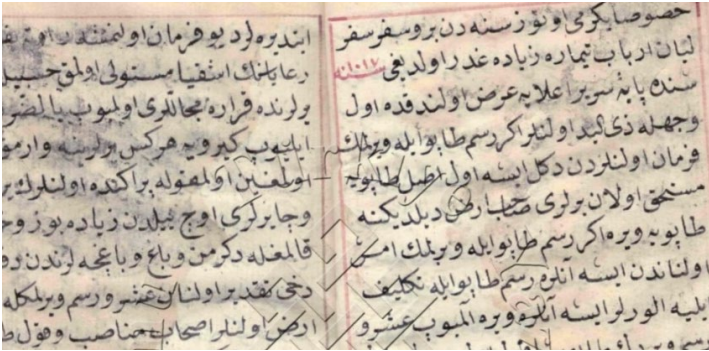 خصوصا یکرمی اوتوز سنه دن برو سفر سفر
لیان ارباب تیماره زیاده غدر اولدیغی
سنده پایهٔ سریر اعلایه عرض اولندقده اول
وجهله اولنلر اکر رسم طاپو ایله ویرلمك
فرمان اولنلردن دکل ایسه اول طاپویه
مستحق اولان یرلری صاحب ارض دیلدیکنه
طاپویه ویره اکر رسم طاپو ایله ویرلمك امر
اولناندن ایسه آنلره رسم طاپو ایله تکلیف
ایلیه الورلر ایسه آنلره ویره المیوب عشر و
ایندیره لر دیو فرمان اولنمشدر
رعایانك اشقیا مستولی اولمق حسبیله
یرلرنده قراره مجاللری اولمیوب بالضرو
ایلیوب کیرویه هرکس یرلرینه وارمق
اولمغین اول مقوله پراکنده اولنلرك یر
وچایرلری اوچ ییلدن زیاده بوز وخ
قالمغله دکرمن وباغ وباغچه لرندن
دخی تقدیر اولنان عشر ورسم ویرلمکله
ارض اولنلر اصحاب مناصب وقول